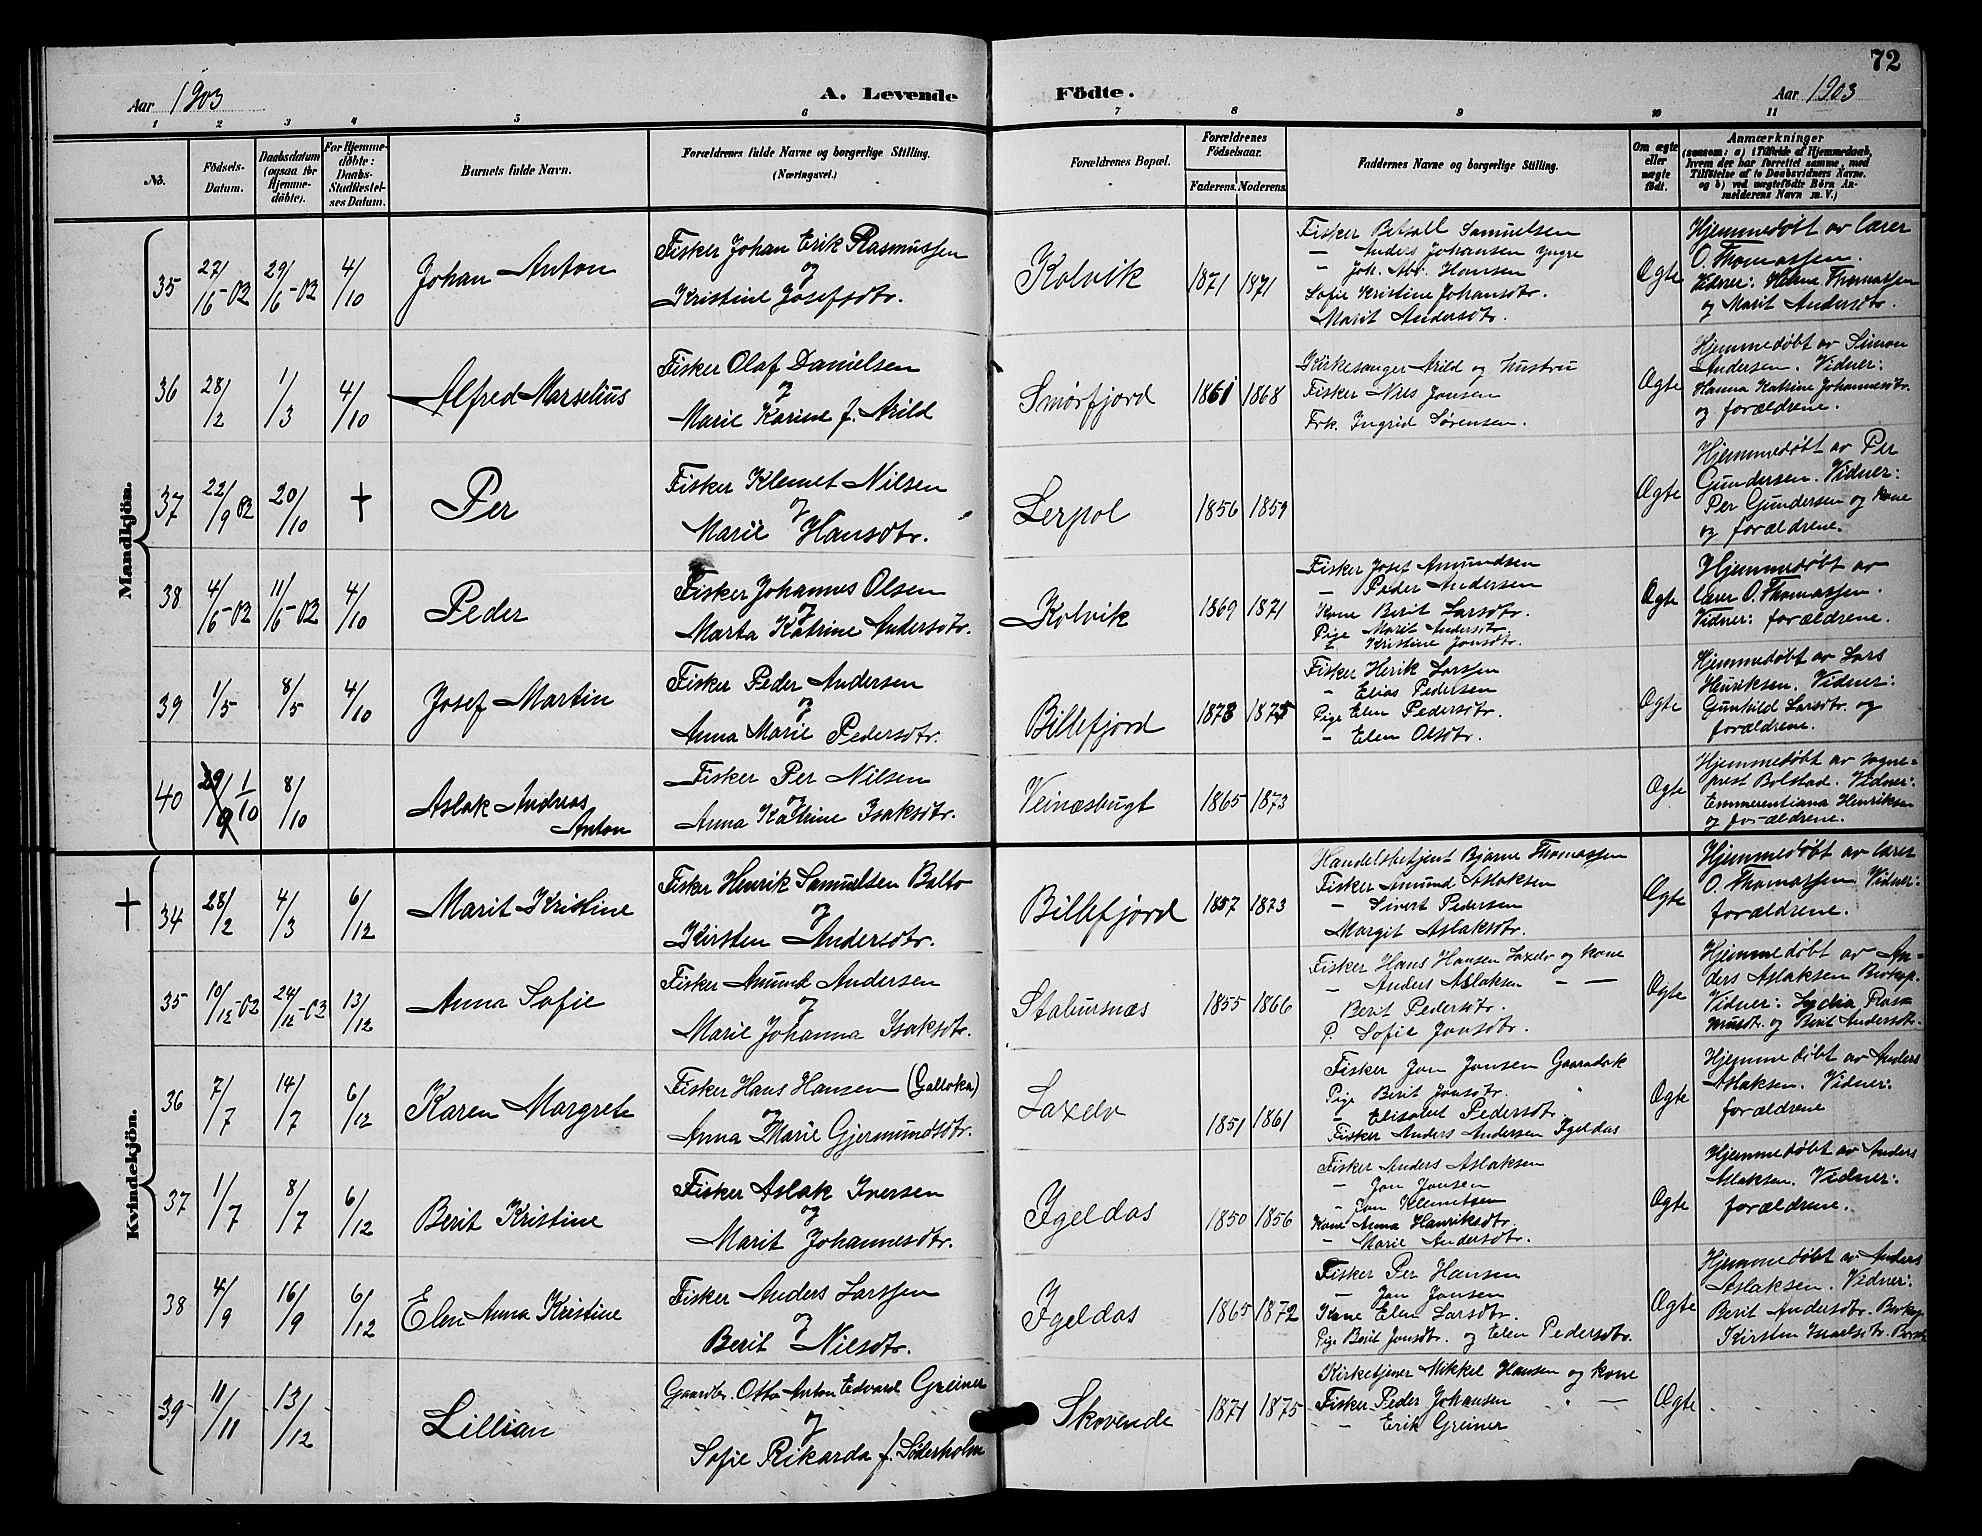 72
Aar 1903
A. Levende Födte.
Aar 1903
1 2 3 4 5 6 7 8 9 10 11
No.
Födsels-Datum.
Daabsdatum (ogsaa for Hjemmedöbte).
For Hjemmedöbte: Daabs-Stadfæstelses Datum.
Barnets fulde Navn.
Forældrenes fulde Navne og borgerlige Stilling. (Næringsvei.)
Forældrenes Bopæl.
Forældrenes Födselsaar.
Faderens. Moderens.
Faddernes Navne og borgerlige Stilling.
Om ægte eller uægte födt.
Anmærkninger
(saasom: a) i Tilfælde af Hjemmedaab, hvem der har forrettet samme, med Tilföielse af to Daabsvidners Navne. og b) ved uægtefödte Börn Anmelderens Navn m. V.)
Mandkjön.
35 27/6-02 29/6-02 4/10 Johan Anton
Fisker Johan Erik Rasmussen
og
Kristine Josefsdtr.
Kolvik 1871 1871
Fisker Samuelsen
– Anders Johansen yngre
– Joh. Abr. Hansen
Sofie Kristine Johansdtr.
Marit Andersdtr.
Ægte
Hjemmedøbt av lærer
O. Thomassen.
Vidner: Helene Thomassen
og Marit Andersdtr.
36 28/2 1/3 4/10 Alfred Marselius
Fisker Olaf Danielsen
og
Marie Karine f. Arild
Smørfjord 1861 1868
Kirkesanger Arild og hustru
Fisker Nils Jensen
Frk. Ingrid Sørensen.
Ægte
Hjemmedøbt av Simon
Andersen. Vidner:
Hanna Katrine Johannesdtr.
og forældrene.
37 22/9 02 20/10 † Per
Fisker Klemet Nilsen
og
Marie Hansdtr.
Lerpol 1856 1859
Ægte
Hjemmedøbt av Per
Gundersen. Vidner:
Per Gundersen og kone
og forældrene.
38 4/6-02 11/6-02 4/10 Peder
Fisker Johannes Olsen
og
Marta Katrine Andersdtr.
Kolvik 1869 1871
Fisker Josef Amundsen
– Peder Andersen
Kone Berit Larsdtr.
Pige Marit Andersdtr.
– Kristine Jonsdtr.
Ægte
Hjemmedøbt av
lærer O. Thomassen.
Vidner: forældrene.
39 1/5 8/5 4/10 Josef Martin
Fisker Peder Andersen
og
Anna Marie Pedersdtr.
Billefjord 1873 1875
Fisker Henrik Larssen
– Elias Pedersen
Pige Elen Pedersdtr.
– Elen Olsdtr.
Ægte
Hjemmedøbt av Lars
Henriksen. Vidner:
Gunhild Larsdtr. og
forældrene.
40 29/9 1/10 8/10 Aslak Andreas
Anton
Fisker Per Nilsen
og
Anna Katrine Isaksdtr.
Veinæsbugt 1865 1873
Ægte
Hjemmedøbt av sogne-
prest Bolstad. Vidner:
Emmerentiana Henriksen
og forældrene.
Kvindekjön.
† 34 28/2 4/3 6/12 Marit Kristine
Fisker Henrik Samuelsen Balto
og
Kirsten Andersdtr.
Billefjord 1857 1873
Handelsbetjent Bjarne Thomassen
Fisker Amund Aslaksen
– Sivert Pedersen
Margit Aslaksdtr.
Ægte
Hjemmedøbt av lærer
O. Thomassen. Vidner:
forældrene.
35 10/12-02 24/12-02 13/12 Anna Sofie
Fisker Amund Andersen
og
Marie Johanna Isaksdtr.
Stabursnæs 1855 1866
Fisker Hans Hansen Laxelv og kone
– Anders Aslaksen – –
Berit Pedersdtr.
P. Sofie Jonsdtr.
Ægte
Hjemmedøbt av An-
ders Aslaksen
Vidner: Lydia Ras-
musdtr. og Berit Andersdtr.
36 7/7 14/7 6/12 Karen Margrete
Fisker Hans Hansen (Galloka)
og
Anna Marie Gjermundsdtr.
Laxelv 1851 1861
Fisker Jon Jonsen
Pige Berit Jonsdtr. "
– Elisabet Pedersdtr.
Fisker Anders Andersen Igeldas
Ægte
Hjemmedøbt av Anders
Aslaksen. Vidner:
forældrene
37 1/7 8/7 6/12 Berit Kristine
Fisker Aslak Iversen
og
Marit Johannesdtr.
Igeldas 1850 1856
Fisker Anders Aslaksen
– Jon Jonsen
– Jon Klemetsen
Kone Anna Henriksdtr.
– Marie Andersdtr.
Ægte
Hjemmedøbt av Anders
Aslaksen. Vidner:
forældrene.
38 4/9 16/9 6/12 Elen Anna Kristine
Fisker Anders Larssen
og
Berit Nilsdtr.
Igeldas 1865 1872
Fisker Per Hansen
– Jon Jonsen
Kone Elen Larsdtr.
Pige Berit Jonsdtr. og Elen Pedersdtr.
Ægte
Hjemmedøbt av Anders
Aslaksen. Vidner:
Berit Andersdtr.
Kirsten
39 11/11 13/12 Lillian
Gaardbr. Otto Anton Edvard Greiner
og
Sofie Rikarda f. Søderholm
Skovende 1871 1875
Kirketjener Mikkel Hansen og kone
Fisker Peder Johansen " –
– Erik Greiner
Ægte